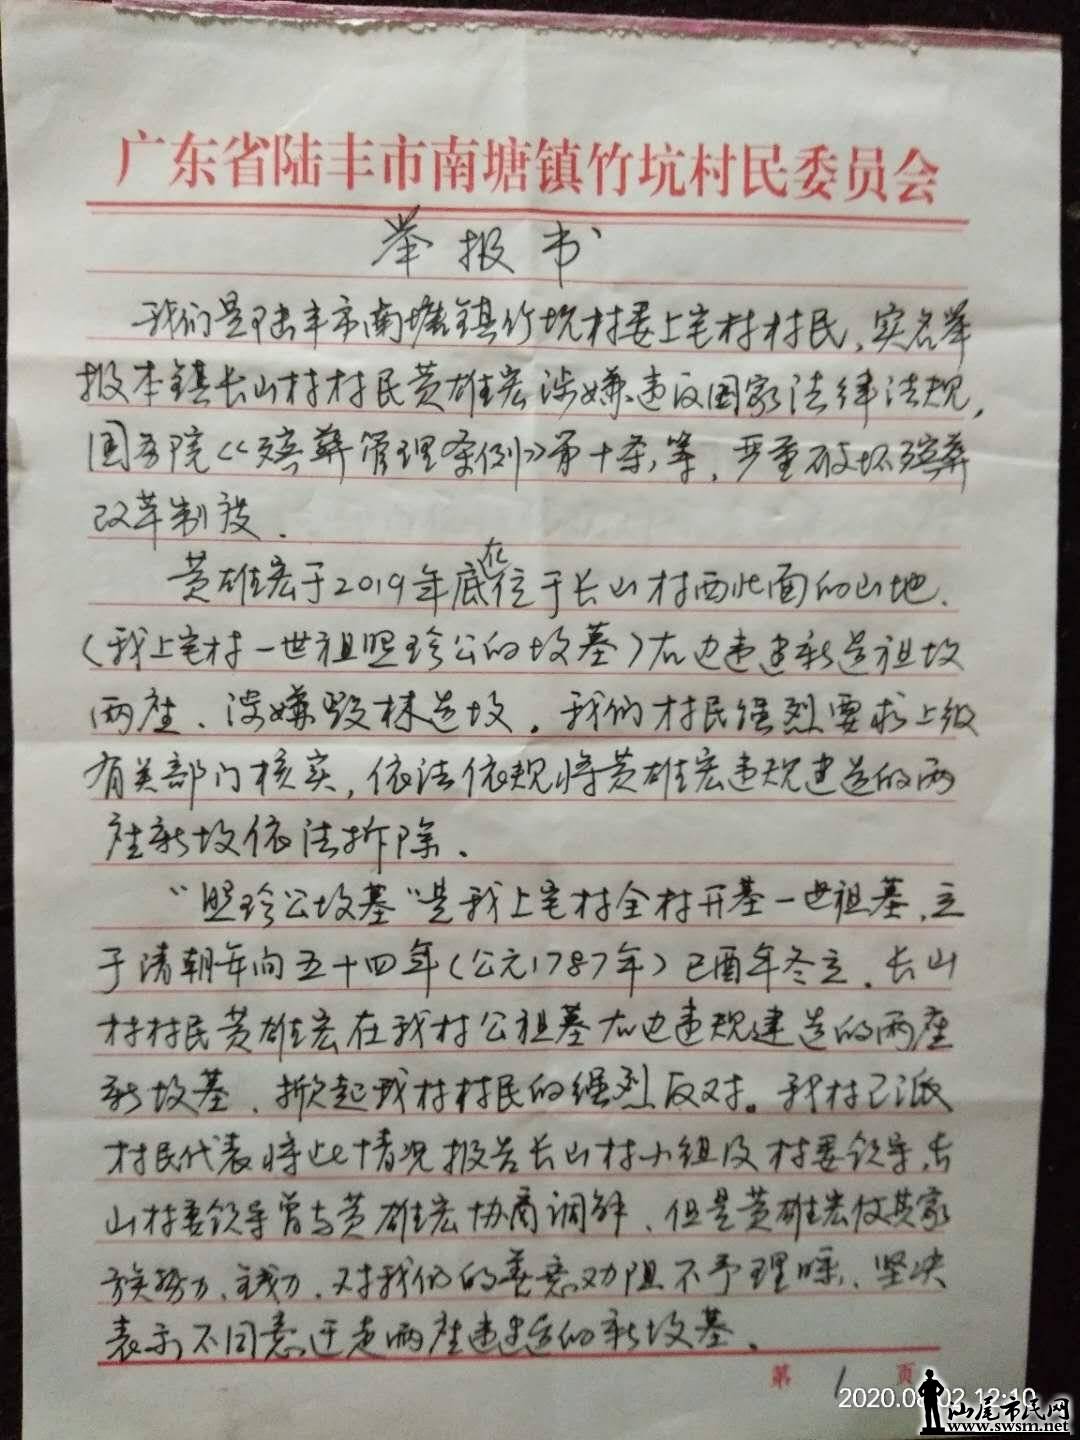 广东省陆丰市南塘镇竹坑村民委员会
举报书
我们是陆丰市南塘镇竹坑村委上宅村村民,实名举
报本镇长山村村民黄雄宏涉嫌违反国家法律法规,
国务院《殡葬管理条例》第十条,等,严重破坏殡葬
改革制度.
黄雄宏于2019年底在位于长山村西北面的山地.
(我上宅村一世祖照珍公的坟墓)右边违建新造祖坟
两座、涉嫌毁林造坟。我们村民强烈要求上级
有关部门核实,依法依规将黄雄宏违规建造的两
座新坟依法拆除.
"照珍公坟墓"是我上宅村全村开基一世祖墓,立
于清朝年间五十四年(公元1787年)已酉年冬立.长山
村村民黄雄宏在我村公祖墓右边违规建造的两座
新坟墓、掀起我村村民的强烈反对。我村已派
村民代表将此情况报告长山村小组及村委领导,长
山村委领导曾与黄雄宏协商调解、但是黄雄宏仗其家
族势力、钱力、对我们的善意劝阻不予理睬、坚决
表示不同意迁走两座违建造的新坟墓.
第 1 页
2020.08.02 12:10
汕尾市民网
www.swsm.net